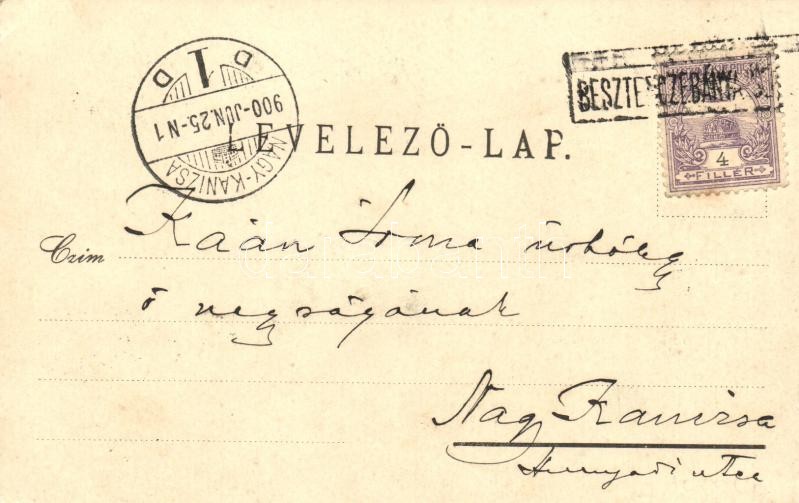 D 1 D
900-JUN.25-N1
NAGY-KANIZSA
BESZTERCZEBÁNYA
4
FILLÉR
LEVELEZŐ-LAP.
Czim Kaán Irma úrhölgy
ő nagságának
Nag Kanizsa
Hunyadi utca